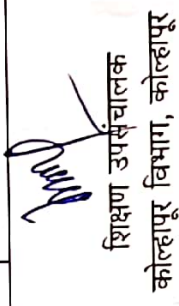 शिक्षण उपसंचालक
कोल्हापूर विभाग, कोल्हापूर